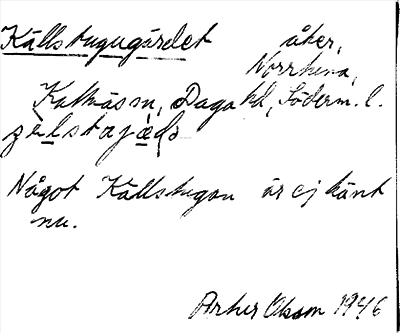 Källstugugärdet åker,
Norrhina,
Kattnäs sn, Daga hd, Söderm. l.
Något Källstugan är ej känt
nu.
Arher Olsson 1946